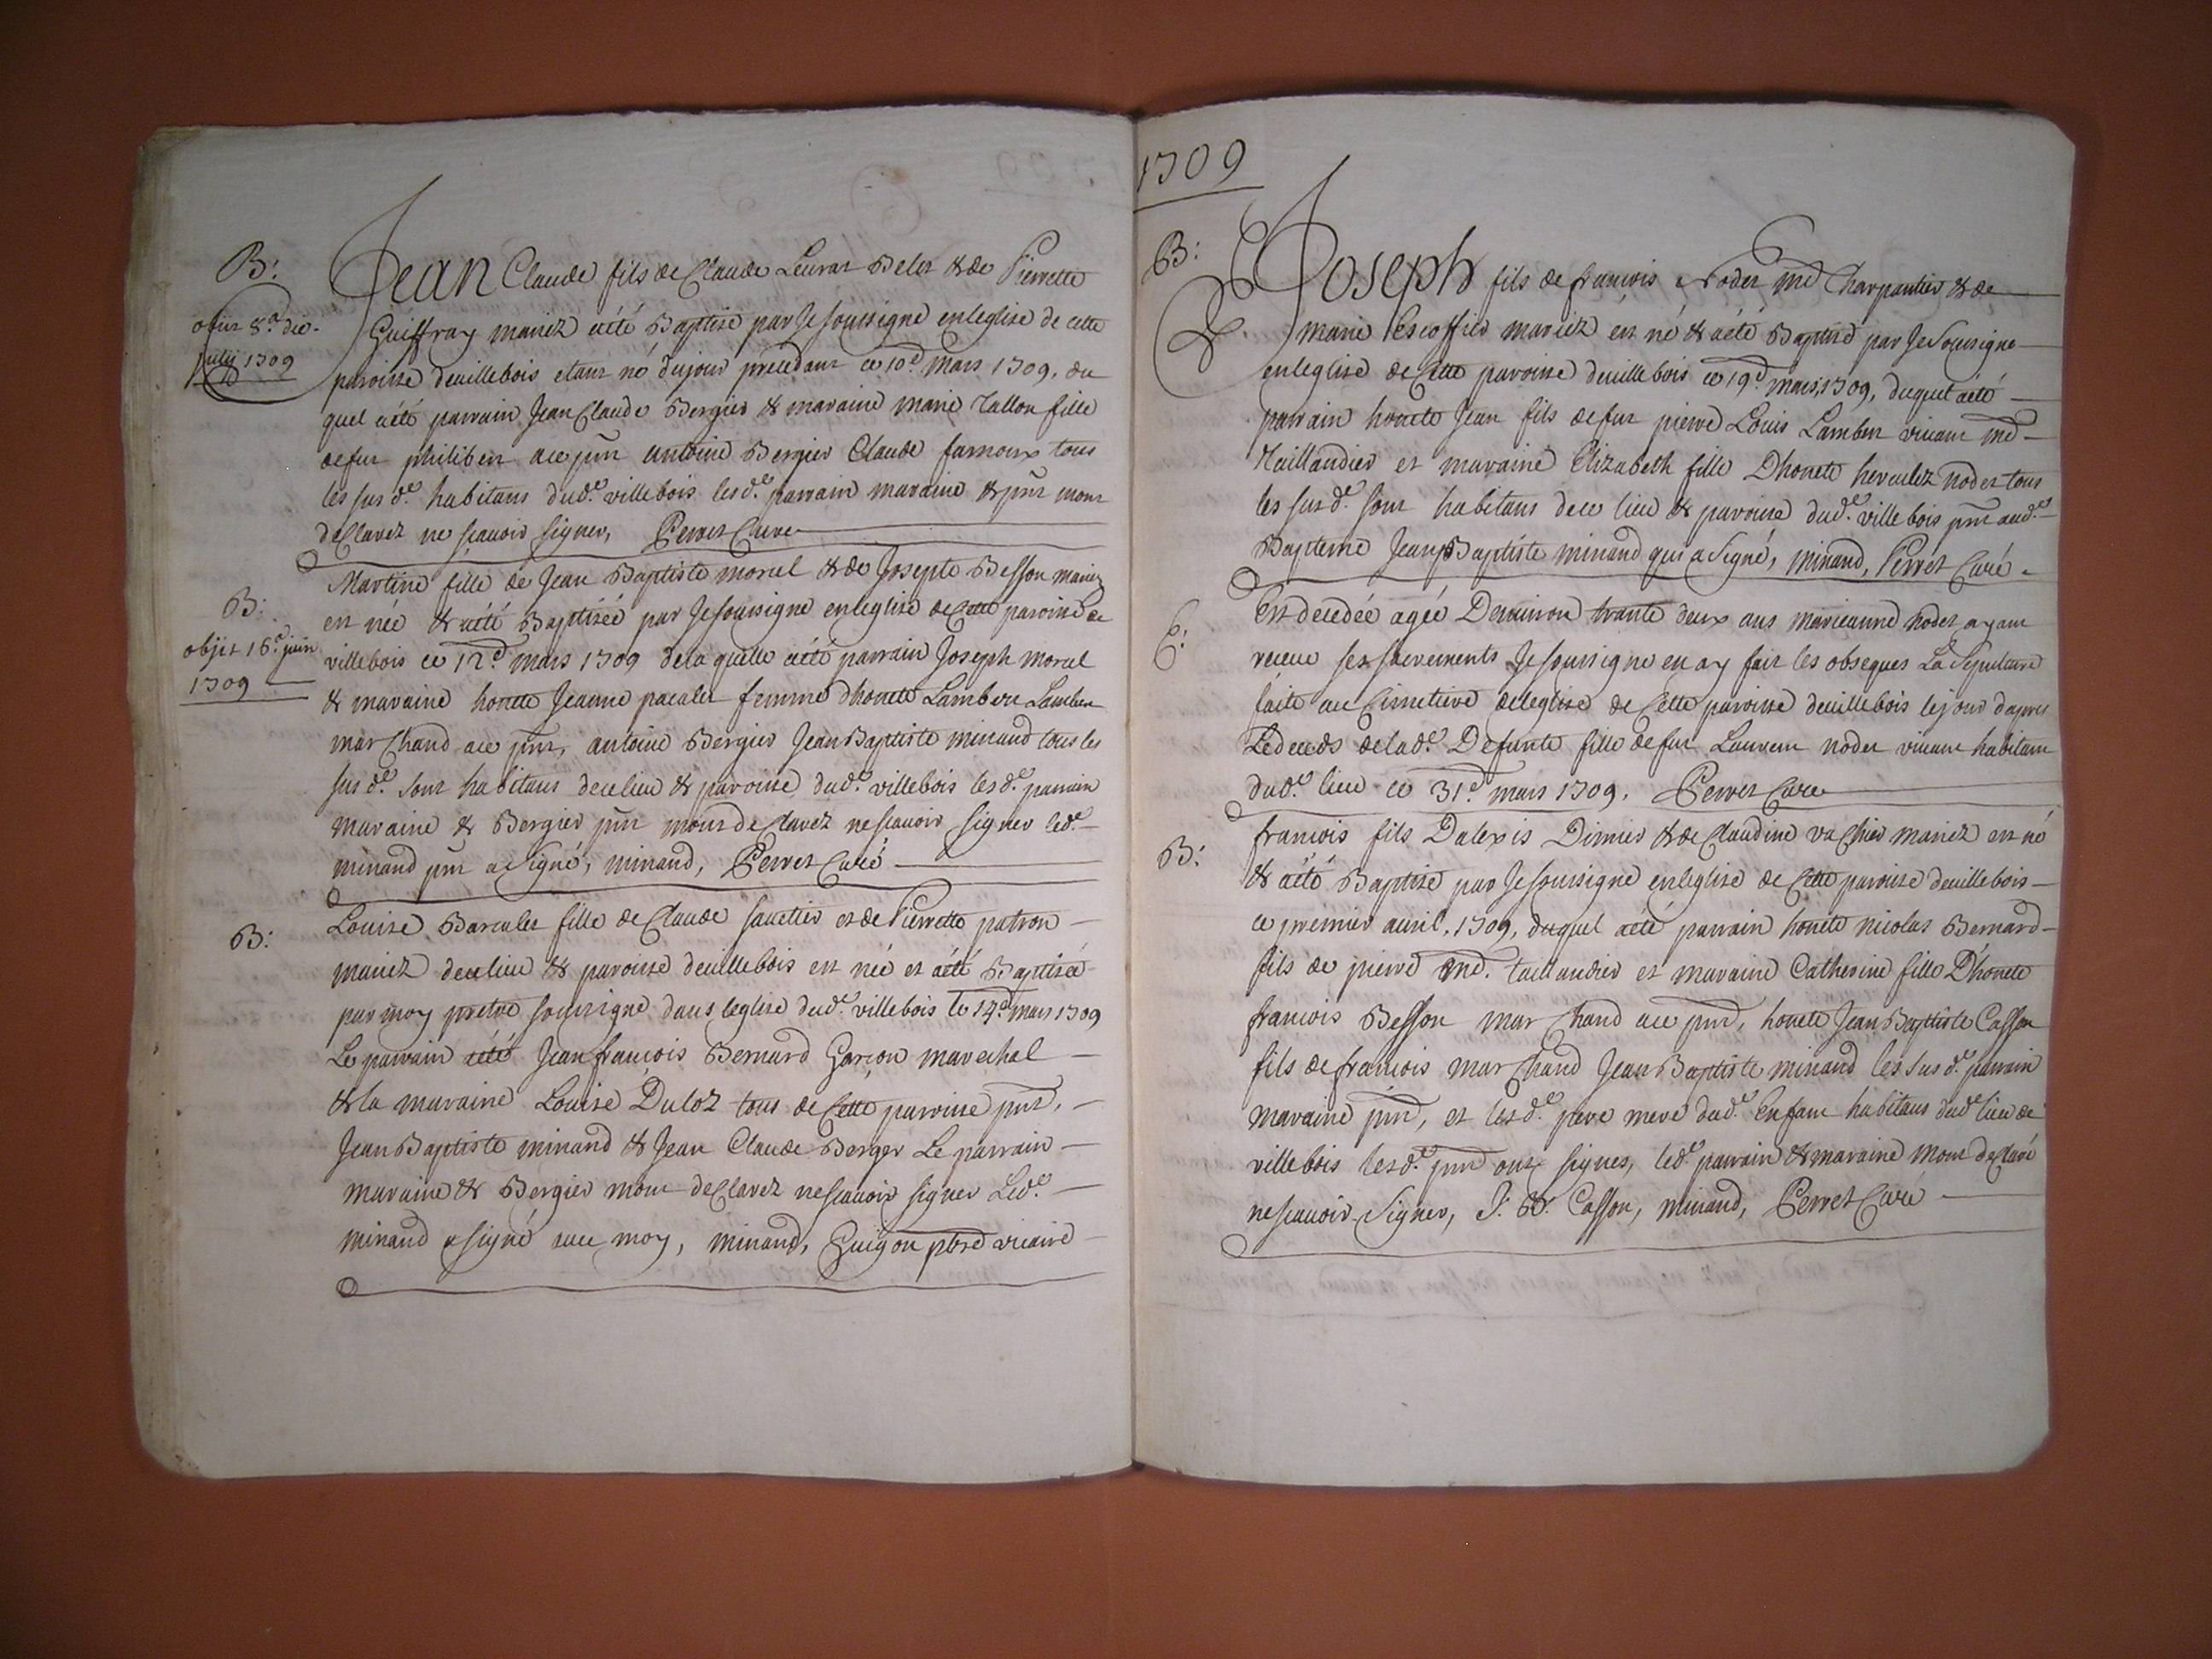 B:
Jean Claude fils de Claude Leurat Belet & de Pierrette
obiit 8.a die.
Guiffray mariez aété Baptisé par Je soussigné enleglise de cette
julij 1709
paroisse deuillebois etant né dujour précédant ce 10.e mars 1709, du
quel aété parrain Jean Claude Bergier & maraine marie Tallon fille
defut philibert ace pnt antoine Bergier Claude famoux tous
les sus d.e habitans dud.e villebois lesd.e parrain maraine & pnt mont
declarez ne scauoir signer, Perret Cure
Martine fille de Jean Baptiste morel & de Josepte Besson mariez
B:
est née & aété Baptizée par Je soussigne enleglise de Cette paroisse de
objit 16.e juin
villebois ce 12.e mars 1709 dela quelle aété parrain Joseph morel
1709
& maraine honete Jeanne pacalet femme dhonete Lambert Lambert
marchand ace pnt, antoine Bergier Jean Baptiste minand tous les
sus d.e sont habitans decelieu & paroisse dud.e villebois les d.e parrain
maraine & Bergier pnt mont declarez nescauoir signer led.e
minand pnt a signé, minand, Perret Curé
B:
Louise Barculet fille de Claude sauetier et de Pierrette patron
mariez decelieu & paroisse deuillebois est née et aété Baptisée
par moy pretre soussigne dans leglise dud.e villebois le 14.e mars 1709
Le parrain aété Jean francois Bernard Garcon marechal
& la maraine Louise Duloz tous de Cette paroisse pnt,
Jean Baptiste minand & Jean Claude Berger Le parrain
maraine & Bergier mont declarez nescauoir signer Led.e
minand a signé auec moy, minand, Guigon ptre vicaire
1709
B:
Joseph fils de francois Nodet md Charpantier & de
marie Escoffier mariez est né & aété Baptisé par Je soussigne
enleglise de Cette paroisse deuillebois ce 19.e mars, 1709, duquel aété
parrain honete Jean fils defut pierre Louis Lambert viuant md
Taillandier et maraine Elizabeth fille Dhonete herculez nodet tous
les susd.e sont habitans dece lieu & paroisse dud.e villebois pnt aud.e
Bapteme Jean Baptiste minand qui a signé, minand, Perret Curé.
E:
Est decedée agée Denuiron trante deux ans marieanne nodet ayant
receue ses sacrements Je soussigne en ay fait les obseques La sepulture
faite au Cimetiere deleglise de Cette paroisse deuillebois lejour dapres
Le deceds delad.e Defunte fille defut Laurent nodet viuant habitant
dud.e lieu ce 31.e mars 1709. Perret Cure
B:
francois fils Dalexis Dimier & de Claudine vachier mariez est né
& aété Baptisé par Je soussigne enleglise de Cette paroisse deuillebois
ce premier auril, 1709, duquel aété parrain honete nicolas Bernard
fils de pierre md. taillandier et maraine Catherine fille Dhonete
francois Besson marchand ace pnt, honete Jean Baptiste Casson
fils de francois marchand Jean Baptiste minand les sus d.e parrain
maraine pnt, et lesd.e pere mere dud.e Enfant habitans dud.e lieu de
villebois lesd.e pnt ont signes, led.e parrain & maraine mont declaré
nescauoir signer, J. B. Casson, minand, Perret Curé